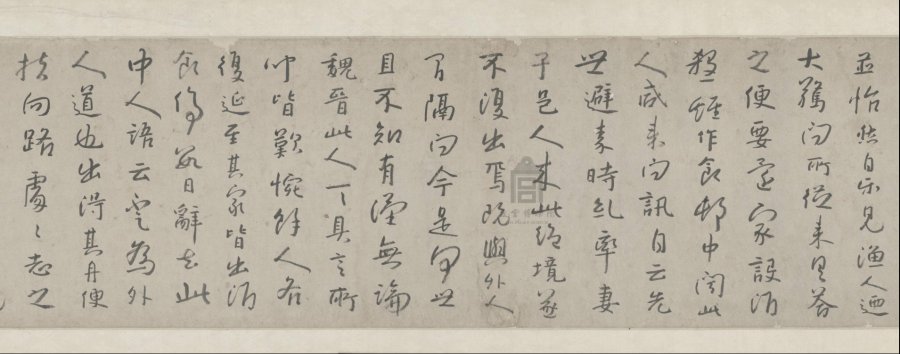 並怡然自樂見漁人迺
大驚問所從來具答
之便要還家設酒
殺雞作食邨中聞此
人咸來問訊自云先
世避秦時亂率妻
子邑人來此絕境並
不復出焉既與外人
間隔問今是何世
且不知有漢無論
魏晉此人一一具言所
聞皆歎惋餘人各
復延至其家皆出酒
食停數日辭去此
中人語云不足為外
人道也出得其舟便
扶向路處〻志之